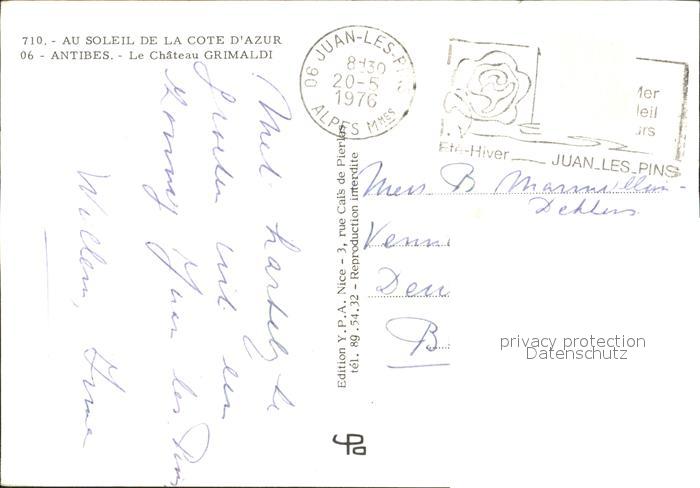 710. - AU SOLEIL DE LA COTE D'AZUR
06 - ANTIBES. - Le Château GRIMALDI
06 JUAN-LES-PINS
8H30
20-5
1976
ALPES MMES
Mer
leil
urs
Eté-Hiver JUAN_LES_PINS
Met hartelijke
groeten uit een
zonnig Juan les Pins
Willem, Irma
Edition Y.P.A. Nice - 3, rue Caïs de Pierlas
tél. 89.54.32 - Reproduction interdite
Mevr. B
Dehlens
Venn
Den
B
privacy protection
Datenschutz